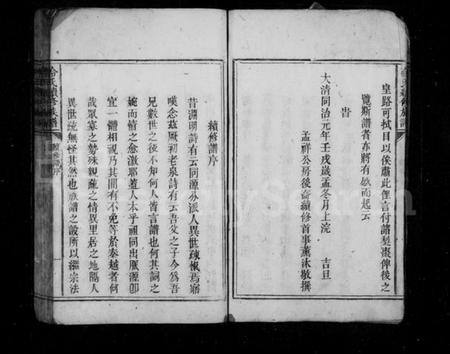 皇路可拭目以俟肅此俚言付諸梨棗俾後之
覽斯譜者亦將有感而起云
旹
大清同治元年壬戌歲孟冬月上浣 吉旦
孟祥公房後裔續修首事薰沐敬撰
續修譜序
昔淵明詩有云同源分派人異世疎慨焉寤
嘆念茲厥初老泉詩有云吾父之子今爲吾
兄數世之後不知何人皆言譜也何其詞之
婉而情之愈激耶蓋人本乎祖同出厥源卽
宜一體相視乃其間有不免等於秦越者何
哉眾寡之勢殊親疎之情異里居之地隔人
異世疎無怪其然也族譜之設所以繼宗法